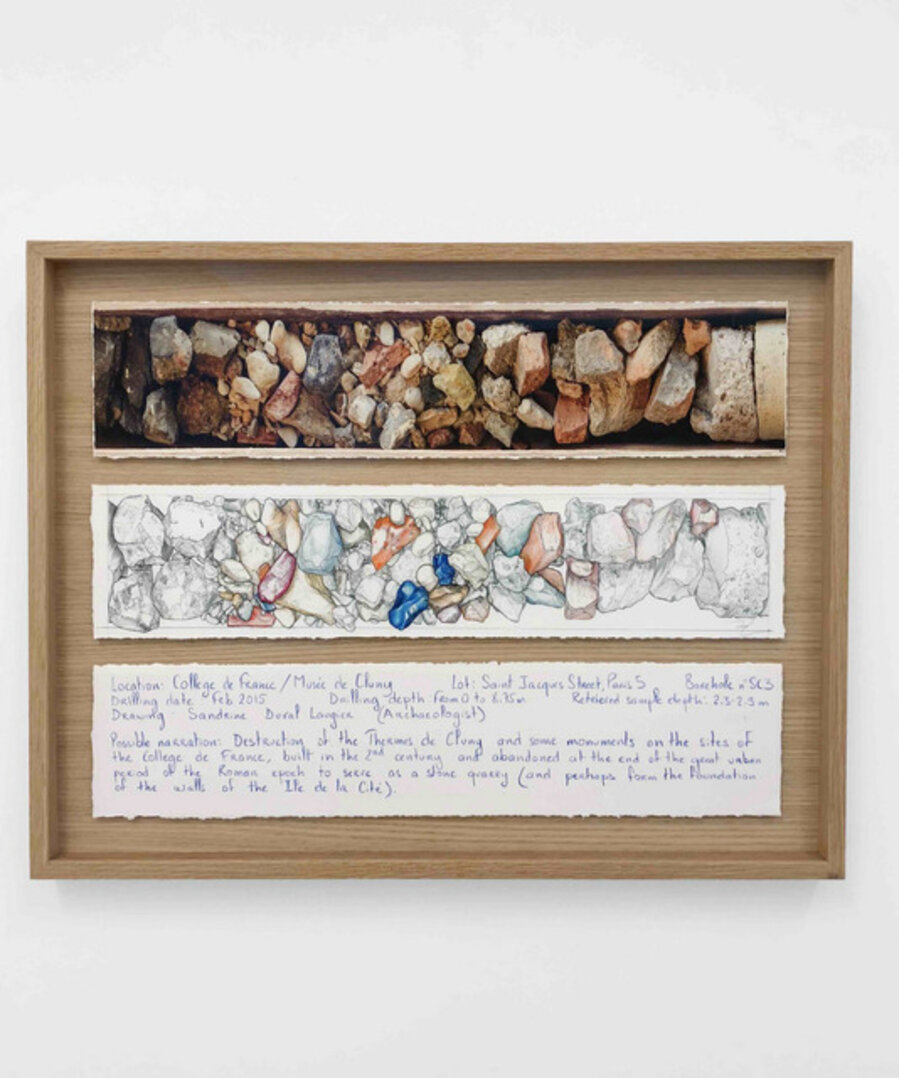 Location: College de France / Musée de Cluny Lot: Saint Jacques Street, Paris 5 Borehole n° SC3
Drilling date Feb 2015 Drilling depth from 0 to 8.75m Retrieved sample depth: 2.3-2.5 m
Drawing Sandrine Duval (Archaeologist)
Possible narration: Destruction of the Thermes de Cluny and some monuments on the sites of
the College de France, built in the 2nd century and abandoned at the end of the great urban
period of the Roman epoch to serve as a stone quarry (and perhaps form the foundation
of the walls of the Ile de la Cité).